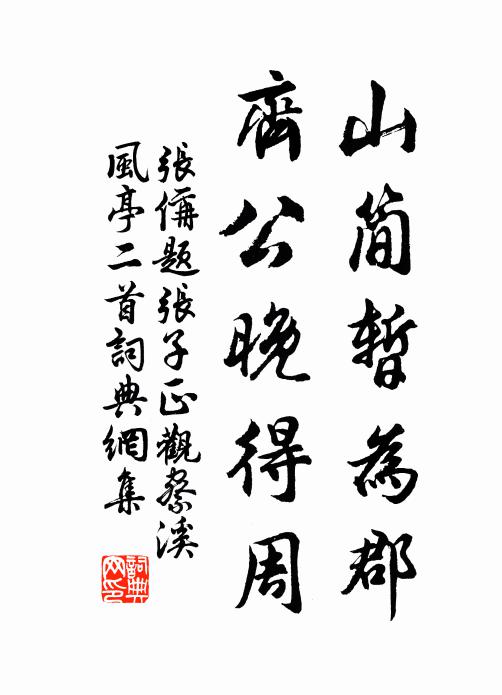 山简暫為郡
齊公晚得周
張偁題張子正觀察溪
風亭二首詞典網集
詞典
网印